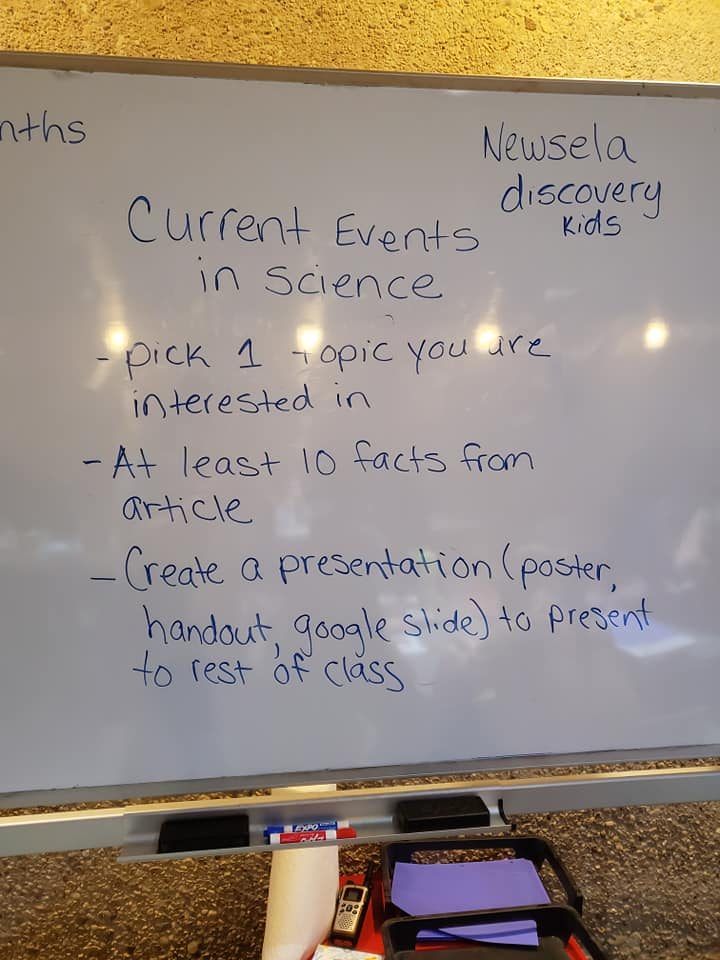 nths
Newsela
discovery
Kids
Current Events
in Science
- pick 1 topic you are
interested in
- At least 10 facts from
article
- Create a presentation (poster,
handout, google slide) to present
to rest of class
EXPO